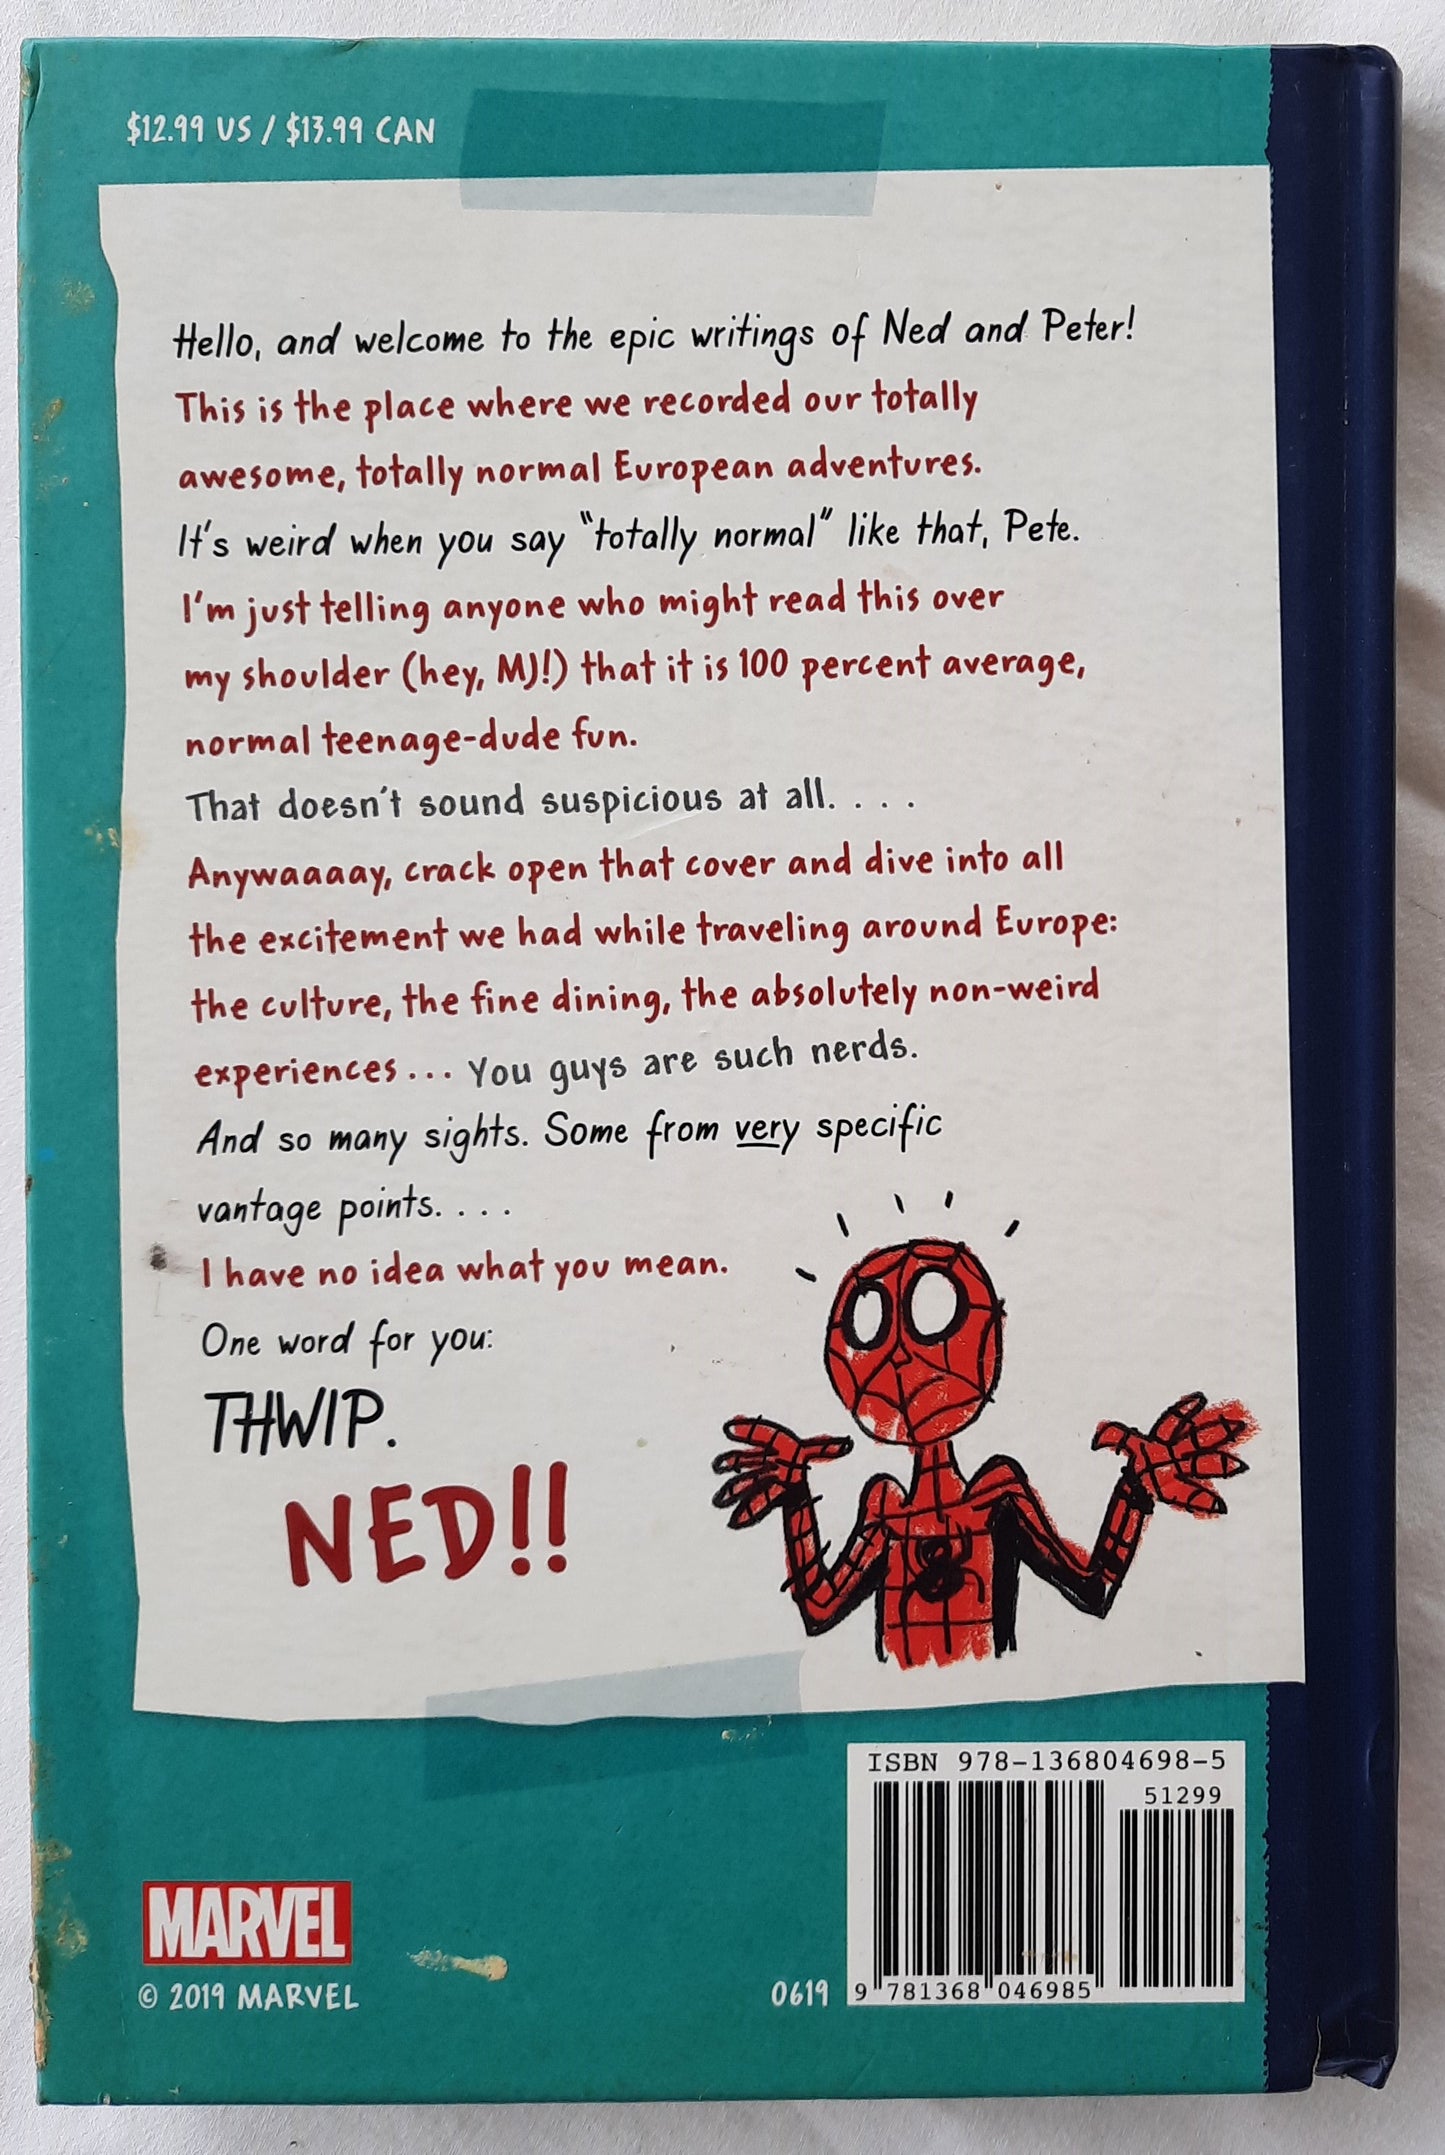 $12.99 US / $13.99 CAN
Hello, and welcome to the epic writings of Ned and Peter!
This is the place where we recorded our totally
awesome, totally normal European adventures.
It's weird when you say "totally normal" like that, Pete.
I'm just telling anyone who might read this over
my shoulder (hey, MJ!) that it is 100 percent average,
normal teenage-dude fun.
That doesn't sound suspicious at all. . . .
Anywaaaay, crack open that cover and dive into all
the excitement we had while traveling around Europe:
the culture, the fine dining, the absolutely non-weird
experiences . . . You guys are such nerds.
And so many sights. Some from very specific
vantage points. . . .
I have no idea what you mean.
One word for you:
THWIP.
NED!!
ISBN 978-136804698-5
51299
9 781368 046985
MARVEL
© 2019 MARVEL
0619